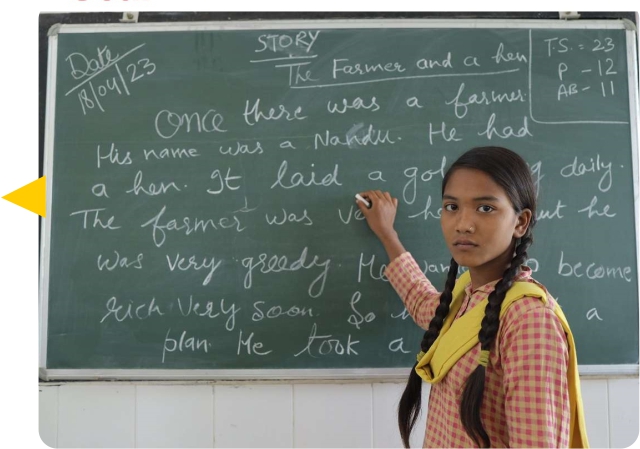 Date
18/04/23
STORY
The Farmer and a hen
T.S. = 23
P - 12
AB - 11
Once there was a farmer.
His name was a Nandu. He had
a hen. It laid a daily.
The farmer was he
was very greedy. He become
rich very soon. So a
plan. He took a